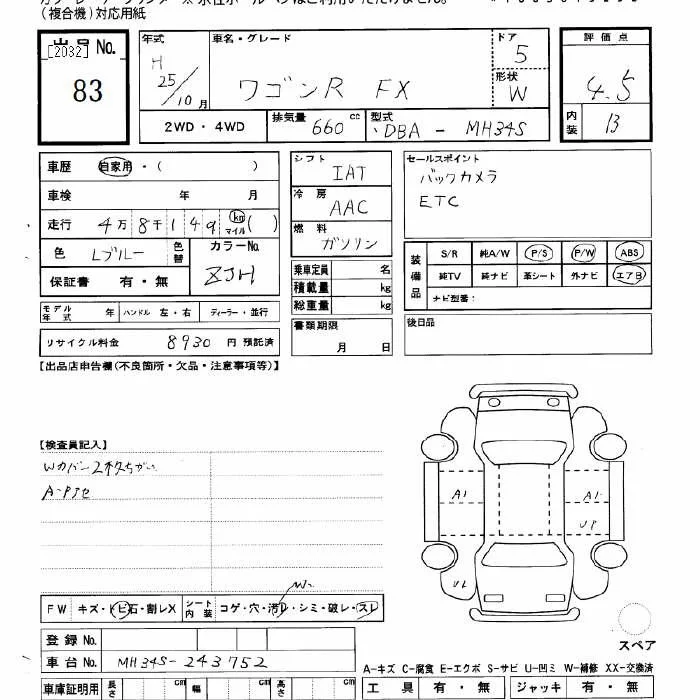 (複合機)対応用紙
出品No.
[2032]
83
年式
H
25/10月
車名・グレード
ワゴンR FX
ドア
5
形状
W
評価点
4.5
内装
B
2WD・4WD
排気量
660 cc
型式
DBA - MH34S
車歴 自家用・( )
車検 年 月
走行 4万8千149 km マイル ( )
色 Lブルー
色替
カラーNo.
ZJH
保証書 有・無
シフト
IAT
冷房
AAC
燃料
ガソリン
乗車定員 名
積載量 kg
総重量 kg
書類期限
月 日
セールスポイント
バックカメラ
ETC
装備品
S/R 純A/W P/S P/W ABS
純TV 純ナビ 革シート 外ナビ エアB
ナビ型番:
後日品
モデル年式 年 ハンドル 左・右 ディーラー・並行
リサイクル料金 8930 円 預託済
【出品店申告欄(不良箇所・欠品・注意事項等)】
【検査員記入】
Wカバー2枚ちがい
A-Pアセ
A1
A1
UP
UL
FW キズ・トビ石・割レX シート内装 コゲ・穴・汚レ・シミ・破レ・スレ
登録No.
車台No. MH34S-243752
スペア
A-キズ C-腐食 E-エクボ S-サビ U-凹ミ W-補修 XX-交換済
車庫証明用 長さ cm 幅 cm 高さ cm
工具 有・無 ジャッキ 有・無